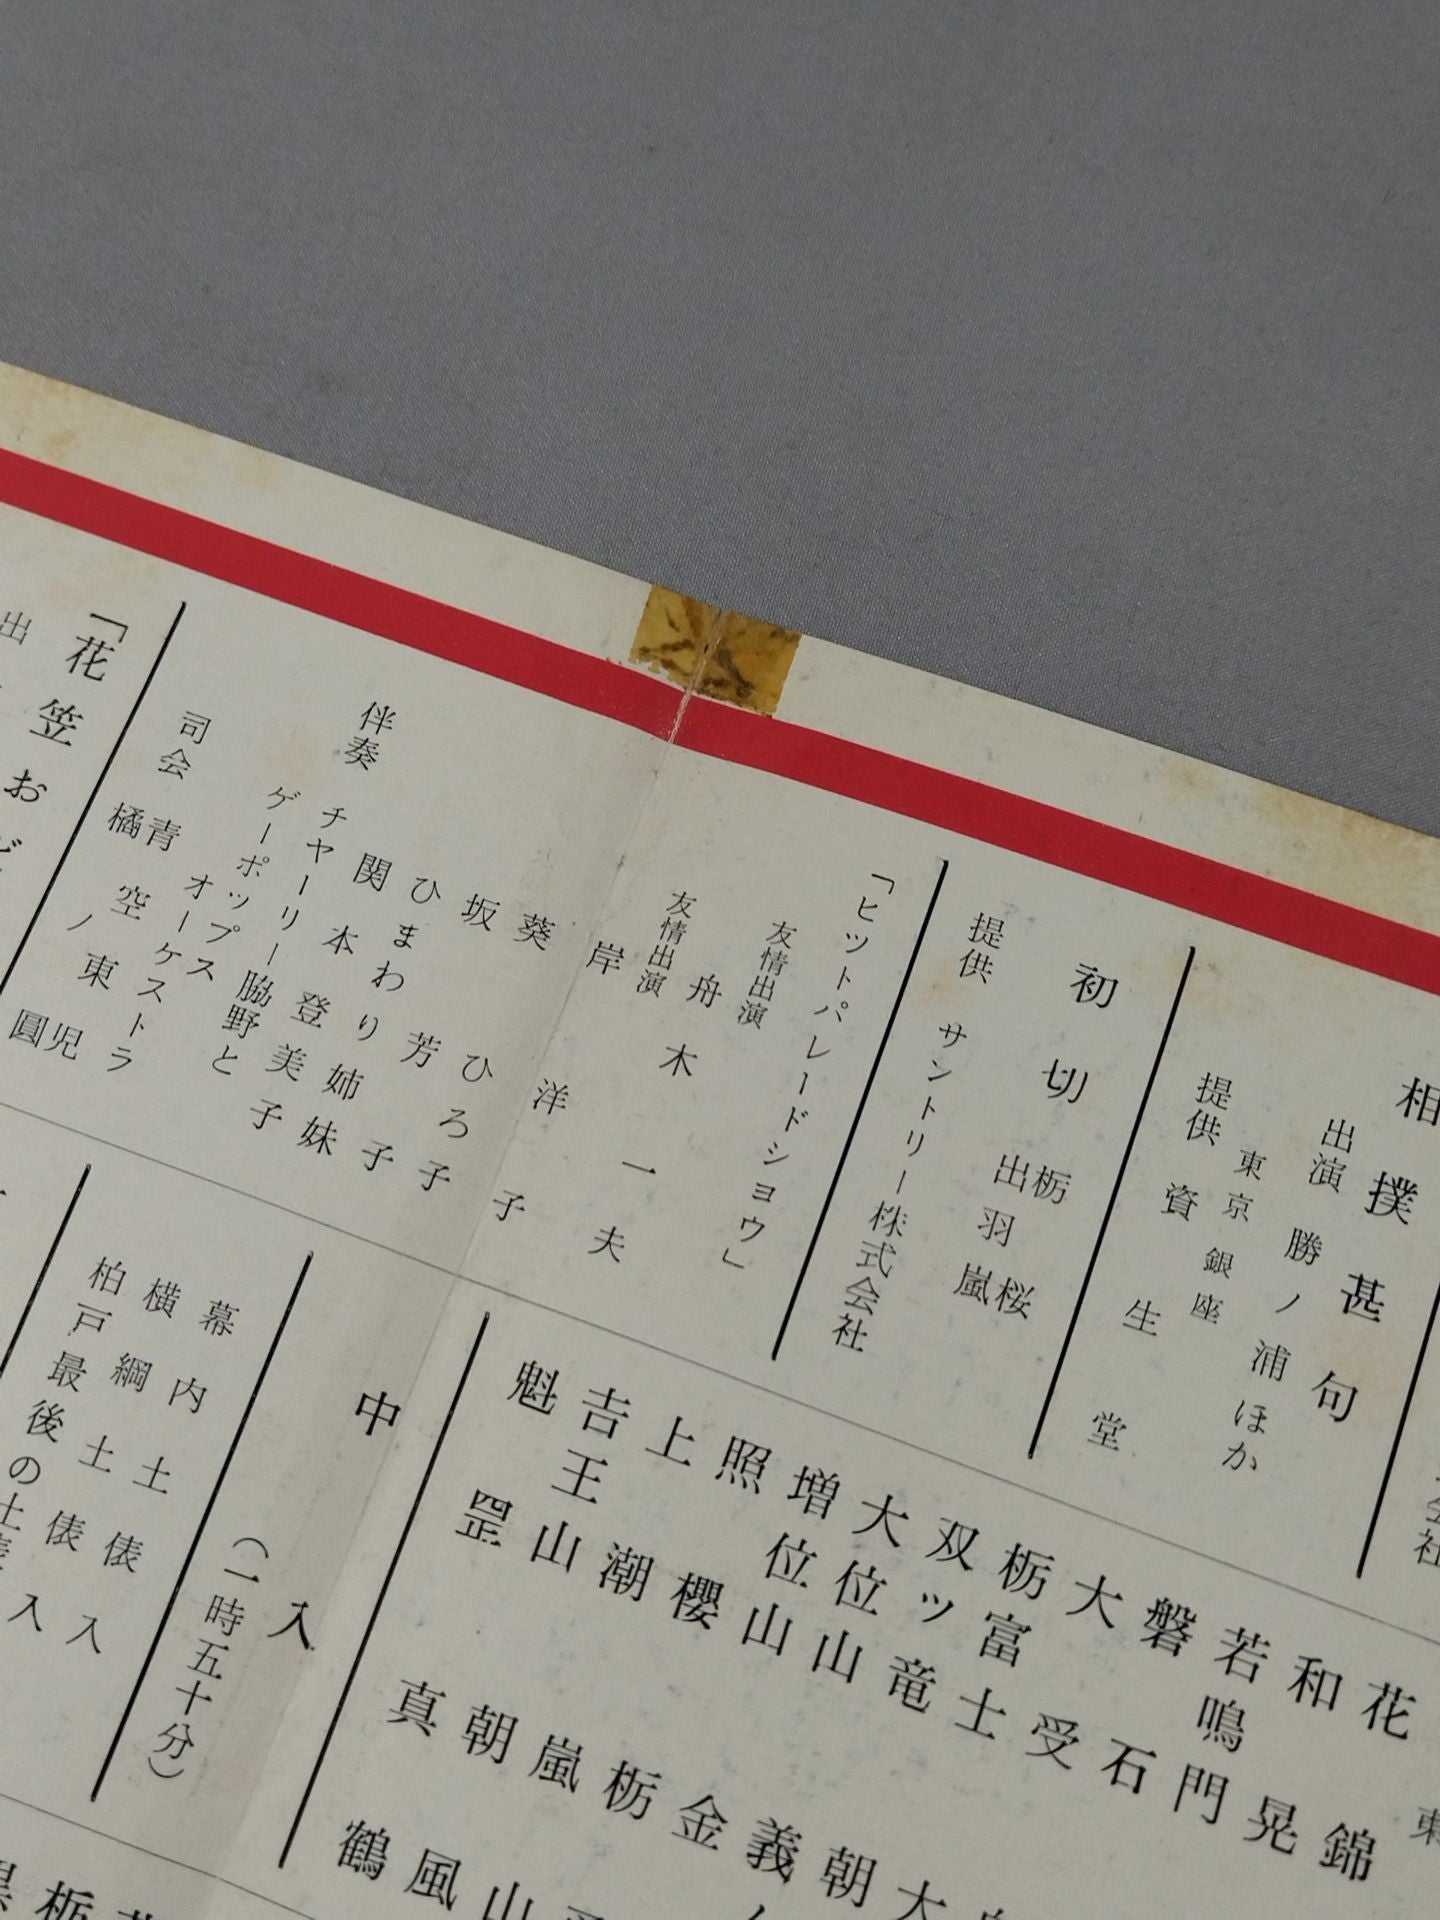 相撲甚句
出演 勝ノ浦ほか
東京銀座
提供 資生堂
初切 栃桜
出羽嵐
提供 サントリー株式会社
「ヒットパレードショウ」
友情出演 舟木一夫
友情出演 岸洋子
葵ひろ子
坂芳子
ひまわり姉妹
関本登美子
伴奏 チヤーリー脇野と
ゲーポップス
オーケストラ
司会 青空東児
橘ノ圓
「花笠おど
出
東
花錦
和晃
若鳴門
磐石
大受
栃富士
双ツ竜
大位山
増位山
照櫻
上潮
吉王山
魁罡
大
朝
義
金
栃
嵐山
朝風
真鶴
中入
(一時五十分)
幕内土俵入
横綱土俵入
柏戸最後の土俵入
栃